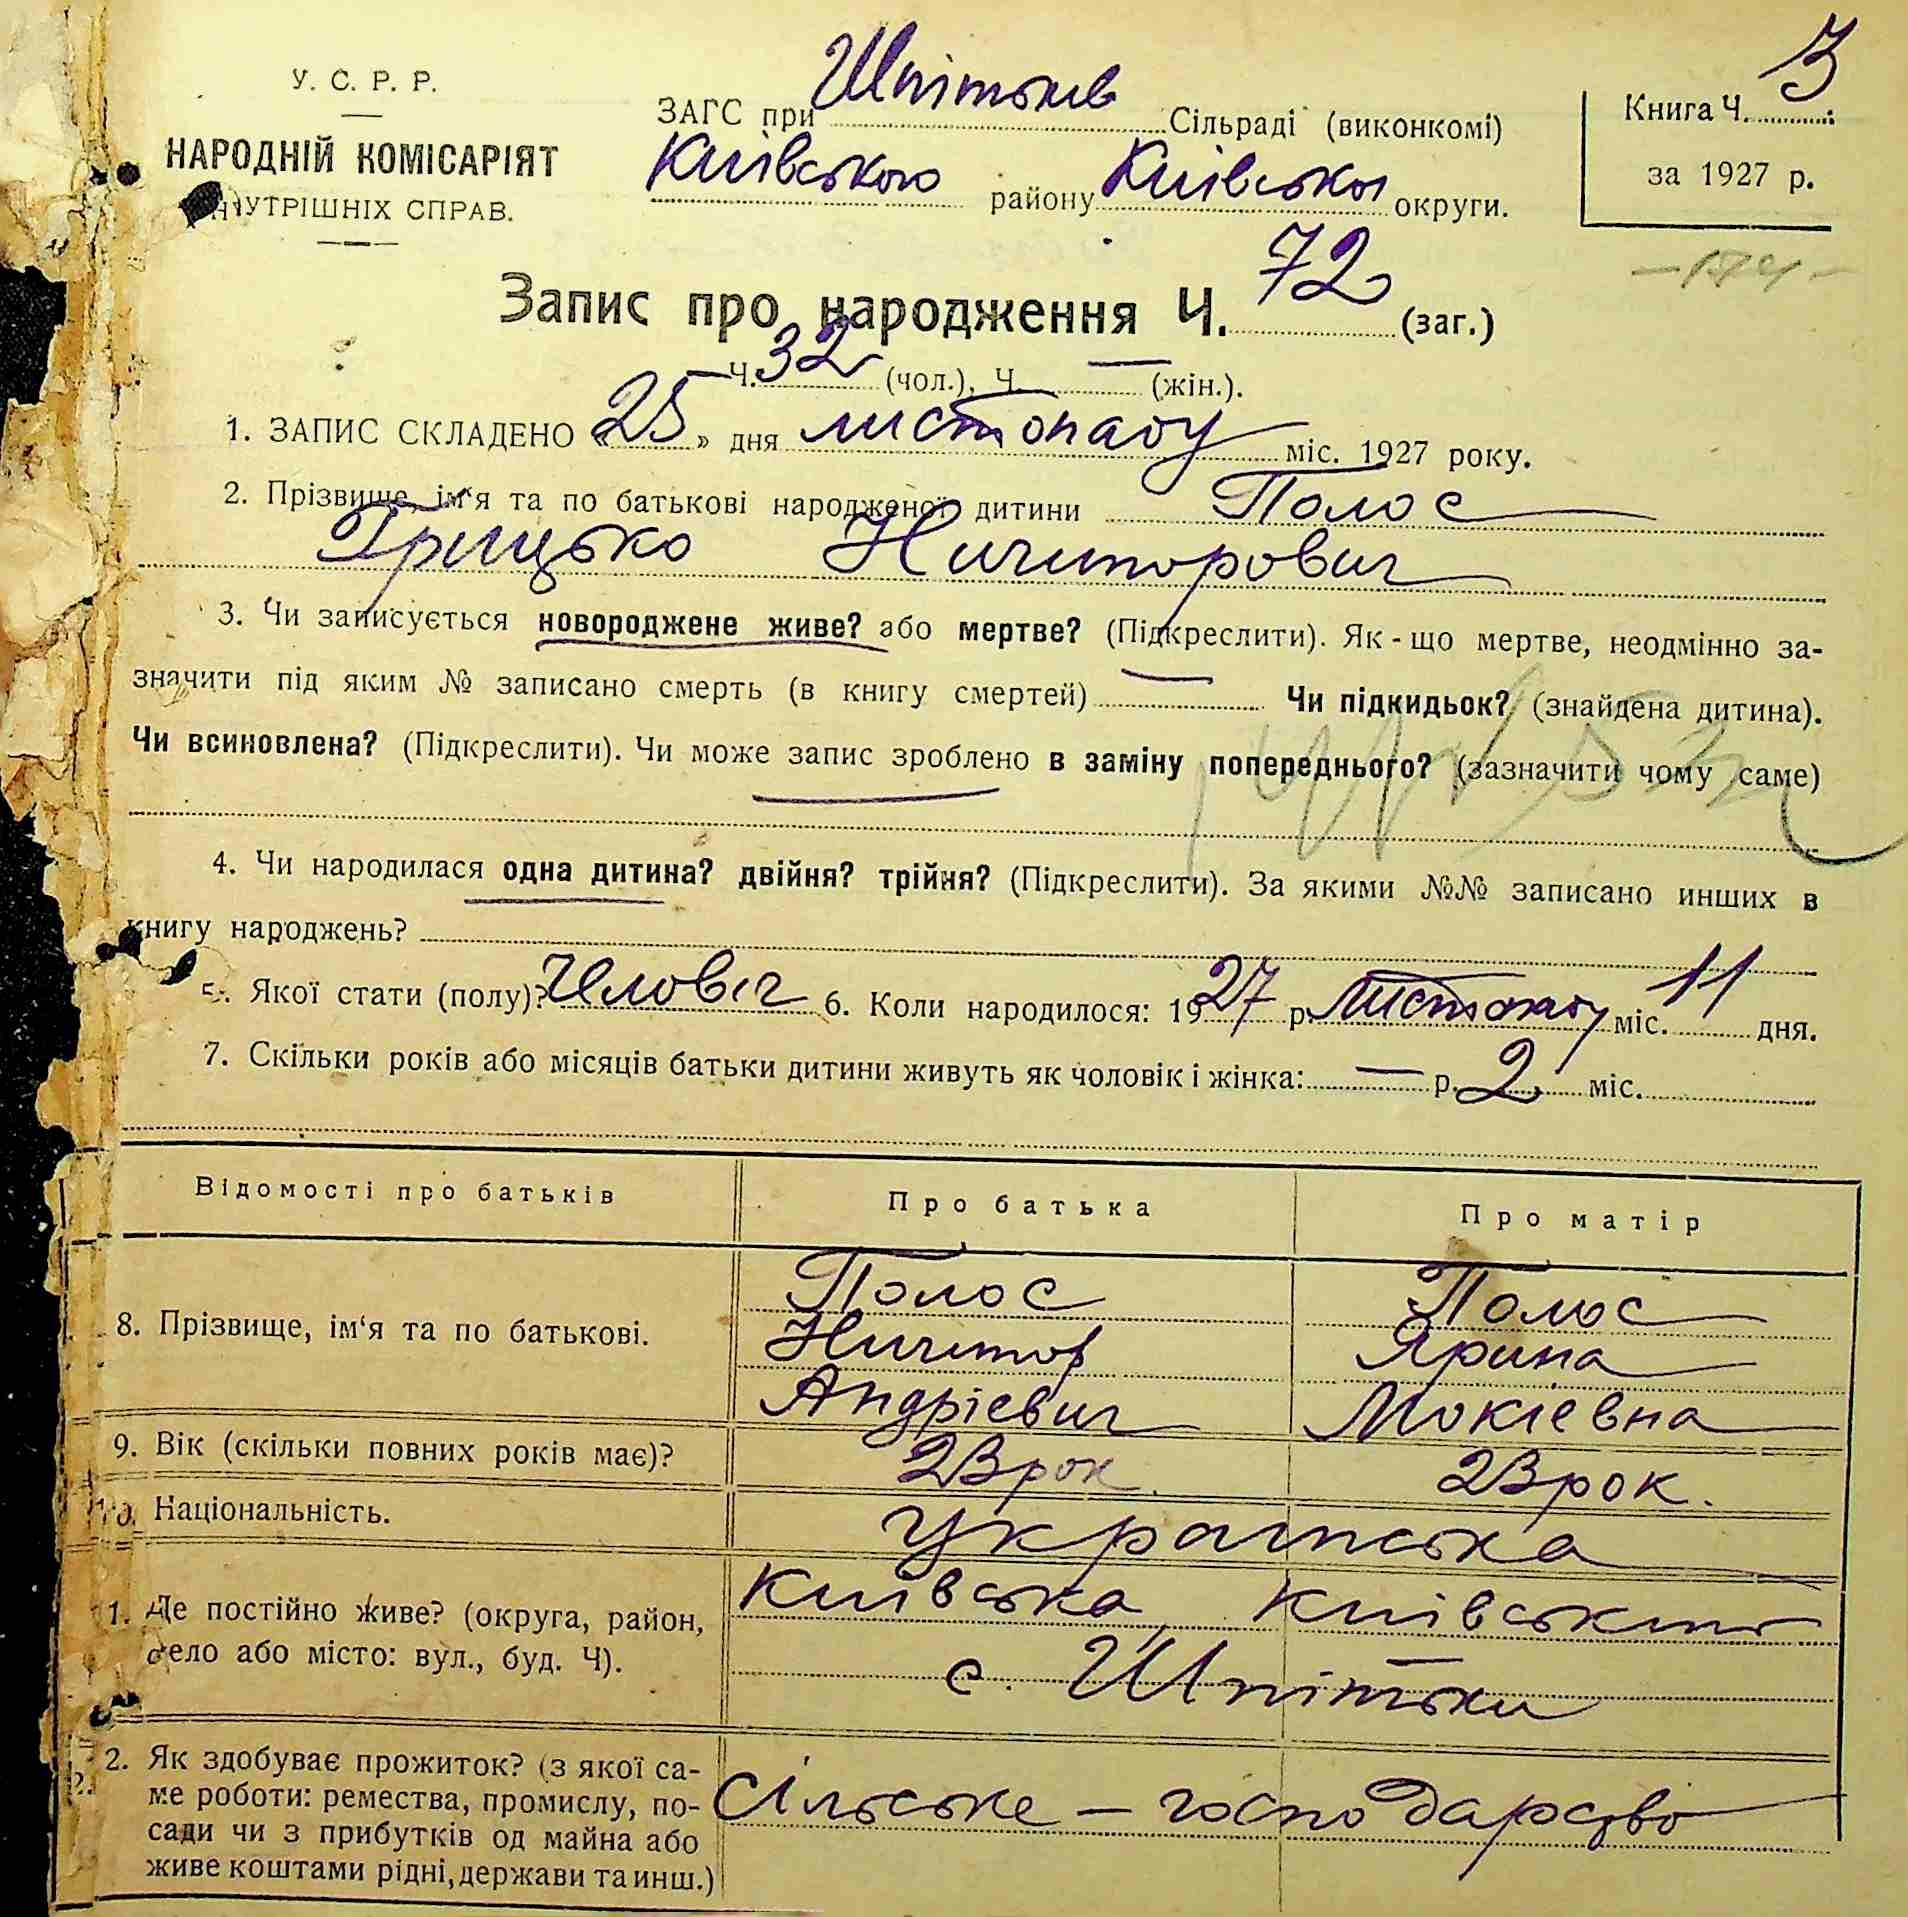 У. С. Р. Р.
НАРОДНІЙ КОМІСАРІЯТ
ВНУТРІШНІХ СПРАВ.
ЗАГС при Шпітьків Сільраді (виконкомі)
Київського району Київської округи.
Книга Ч. 3
за 1927 р.
Запис про народження Ч. 72 (заг.)
Ч. 32 (чол.), Ч. — (жін.).
1. ЗАПИС СКЛАДЕНО «25» дня листопаду міс. 1927 року.
2. Прізвище, ім'я та по батькові народженої дитини Полос
Грицько Ничипорович
3. Чи записується новороджене живе? або мертве? (Підкреслити). Як-що мертве, неодмінно за-
значити під яким № записано смерть (в книгу смертей) — Чи підкидьок? (знайдена дитина).
Чи всиновлена? (Підкреслити). Чи може запис зроблено в заміну попереднього? (зазначити чому саме)
4. Чи народилася одна дитина? двійня? трійня? (Підкреслити). За якими №№ записано инших в
книгу народжень?
5. Якої стати (полу)? Человіч 6. Коли народилося: 1927 р. Листопаду міс. 11 дня.
7. Скільки років або місяців батьки дитини живуть як чоловік і жінка: — р. 2 міс.
Відомості про батьків Про батька Про матір
8. Прізвище, ім'я та по батькові.
Полос Полос
Ничипор Ярина
Андрієвич Мокієвна
9. Вік (скільки повних років має)? 23 рок. 23 рок.
10. Національність. Українська
11. Де постійно живе? (округа, район,
село або місто: вул., буд. Ч).
Київська Київський
с. Шпітьки
12. Як здобуває прожиток? (з якої са-
ме роботи: ремества, промислу, по-
сади чи з прибутків од майна або
живе коштами рідні, держави та инш.)
Сільське — господарство